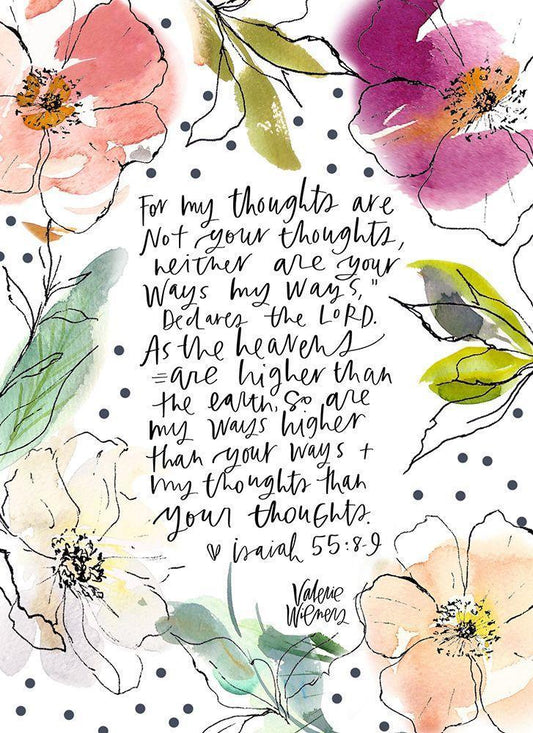 For my thoughts are
Not your thoughts,
neither are your
ways my ways,"
Declares the LORD.
As the heavens
are higher than
the earth, so are
my ways higher
than your ways +
my thoughts than
your thoughts.
isaiah 55:8-9
Valerie
Wieners